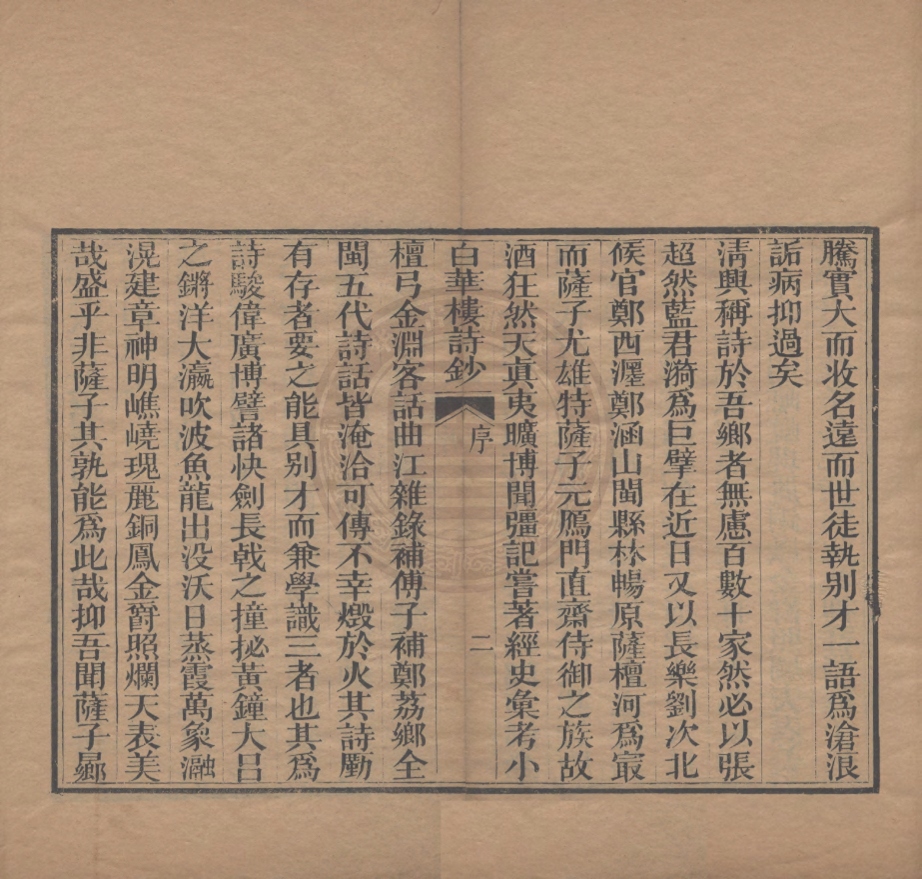 騰實大而收名遠而世徒執別才一語爲滄浪
詬病抑過矣
淸興稱詩於吾鄉者無慮百數十家然必以張
超然藍君漪爲巨擘在近日又以長樂劉次北
候官鄭西瀍鄭涵山閩縣林暢原薩檀河爲㝡
而薩子尤雄特薩子元鴈門直齋侍御之族故
酒狂然天眞夷曠博聞彊記嘗著經史彙考小
白華樓詩鈔 序 二
檀弓金淵客話曲江雜錄補傅子補鄭荔鄉全
閩五代詩話皆淹洽可傳不幸燬於火其詩勵
有存者要之能具別才而兼學識三者也其爲
詩駿偉廣博譬諸快劍長戟之撞挻黃鐘大呂
之鏘洋大瀛吹波魚龍出没沃日蒸霞萬象瀜
滉建章神明嶕嶢瑰麗銅鳳金爵照爛天表美
哉盛乎非薩子其孰能爲此哉抑吾聞薩子曏